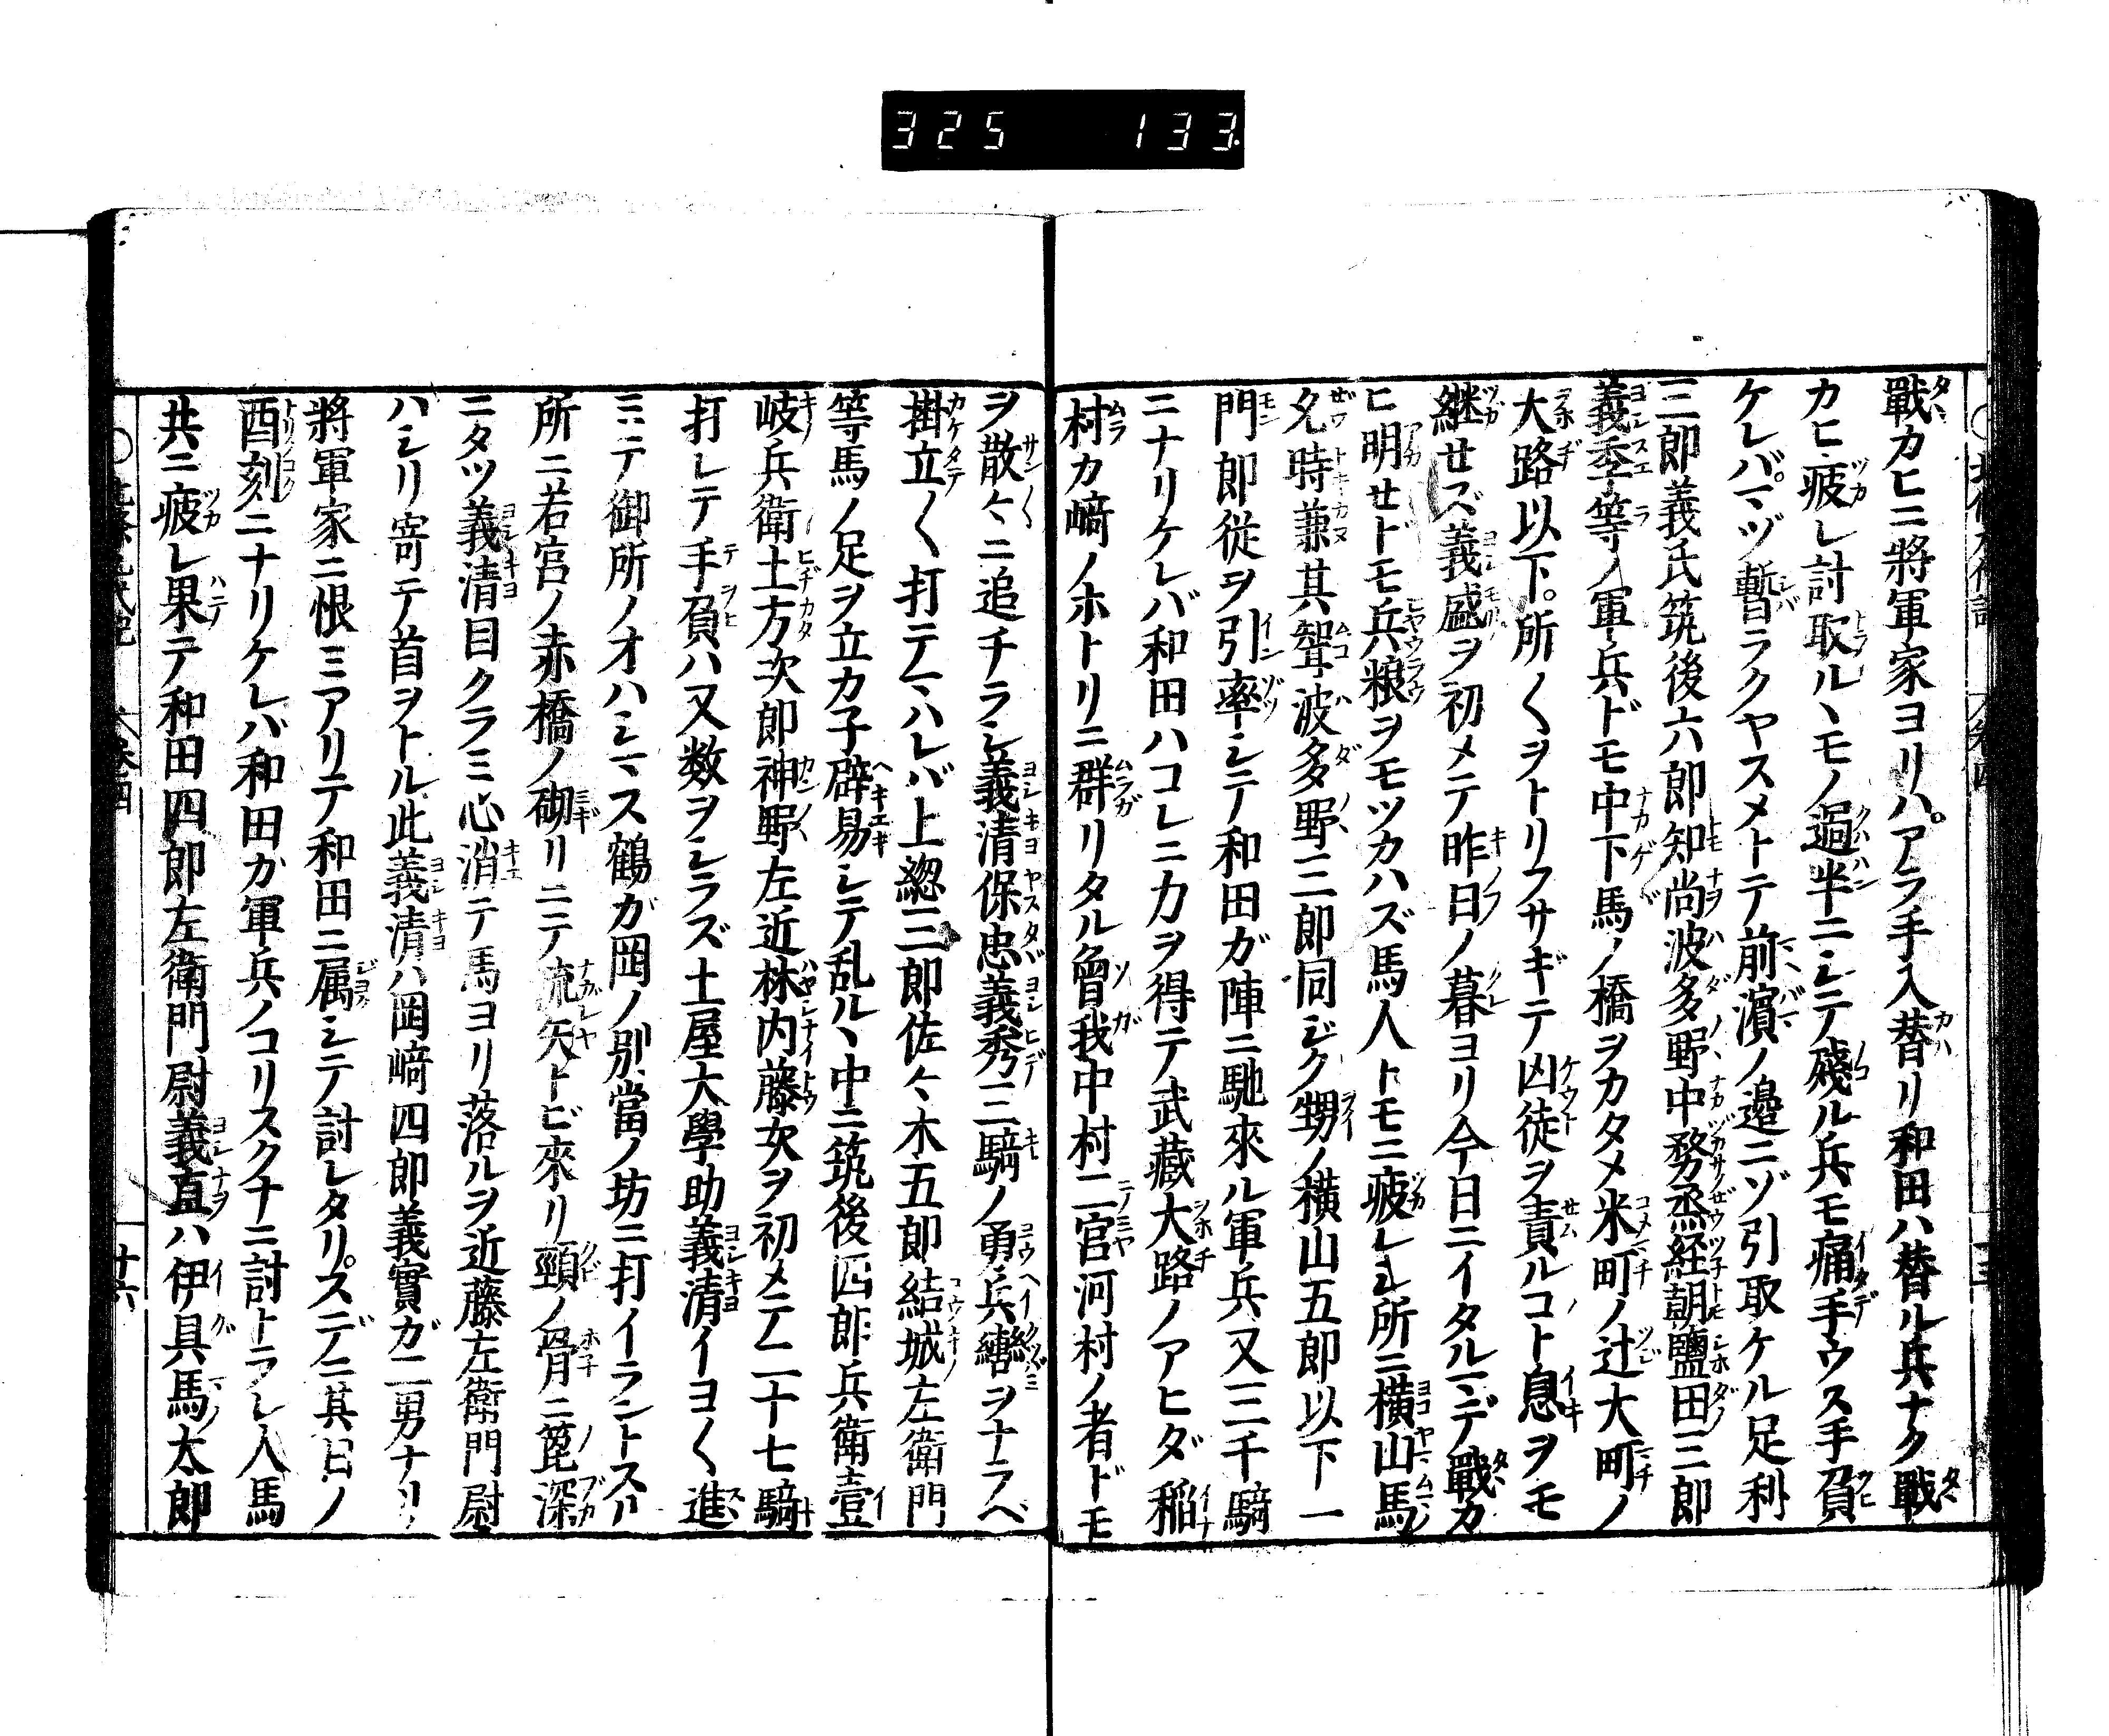 325 133.
戰カヒニ將軍家ヨリハ。アラ手入替リ和田ハ替ル兵ナク戰
カヒ疲レ討取ルヽモノ過半ニシテ殘ル兵モ痛手ウス手負
ケレバ。マヅ暫ラクヤスメトテ前濱ノ邉ニゾ引取ケル足利
三郎義氏筑後六郎知尚波多野中務丞経朝鹽田三郎
義季等ノ軍兵ドモ中下馬ノ橋ヲカタメ米町ノ辻大町ノ
大路以下。所〱ヲトリフサギテ凶徒ヲ責ルコト息ヲモ
継セズ義盛ヲ初メテ昨日ノ暮ヨリ今日ニイタルマデ戰カ
ヒ明セドモ兵粮ヲモツカハズ馬人トモニ疲レシ所ニ横山馬
允時兼其聟波多野三郎同ジク甥ノ横山五郎以下一
門郎従ヲ引率シテ和田ガ陣ニ馳來ル軍兵又三千騎
ニナリケレバ和田ハコレニ力ヲ得テ武藏大路ノアヒダ稲
村カ﨑ノホトリニ群リタル曾我中村二宮河村ノ者ドモ
ヲ散〻ニ追チラシ義清保忠義秀三騎ノ勇兵轡ヲナラベ
掛立〱打テマハレバ上総三郎佐々木五郎結城左衛門
等馬ノ足ヲ立カ子辟易シテ乱ルヽ中ニ筑後四郎兵衛壹
岐兵衛土方次郎神野左近林内藤次ヲ初メテ二十七騎
打レテ手負ハ又数ヲシラズ土屋大學助義清イヨ〱進
ミテ御所ノオハシマス鶴ガ岡ノ別當ノ坊ニ打イラントスル
所ニ若宮ノ赤橋ノ砌リニテ流矢トビ來リ頸ノ骨ニ箆深
ニタツ義清目クラミ心消テ馬ヨリ落ルヲ近藤左衛門尉
ハシリ寄テ首ヲトル此義清ハ岡﨑四郎義實ガ二男ナリ
將軍家ニ恨ミアリテ和田ニ属シテ討レタリ。スデニ其日ノ
酉刻ニナリケレバ和田ガ軍兵ノコリスクナニ討トラレ人馬
共ニ疲レ果テ和田四郎左衛門尉義直ハ伊具馬太郎
十六